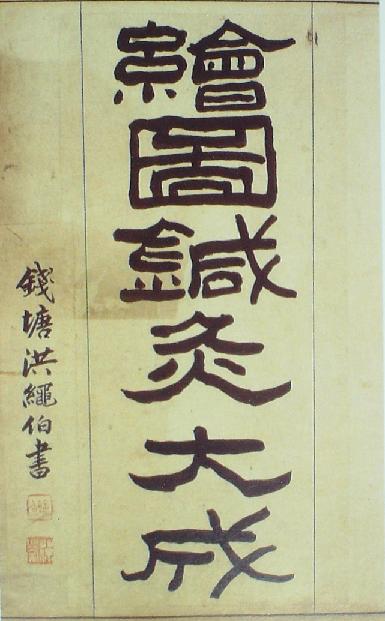 繪圖鍼灸大成
錢塘洪繩伯書